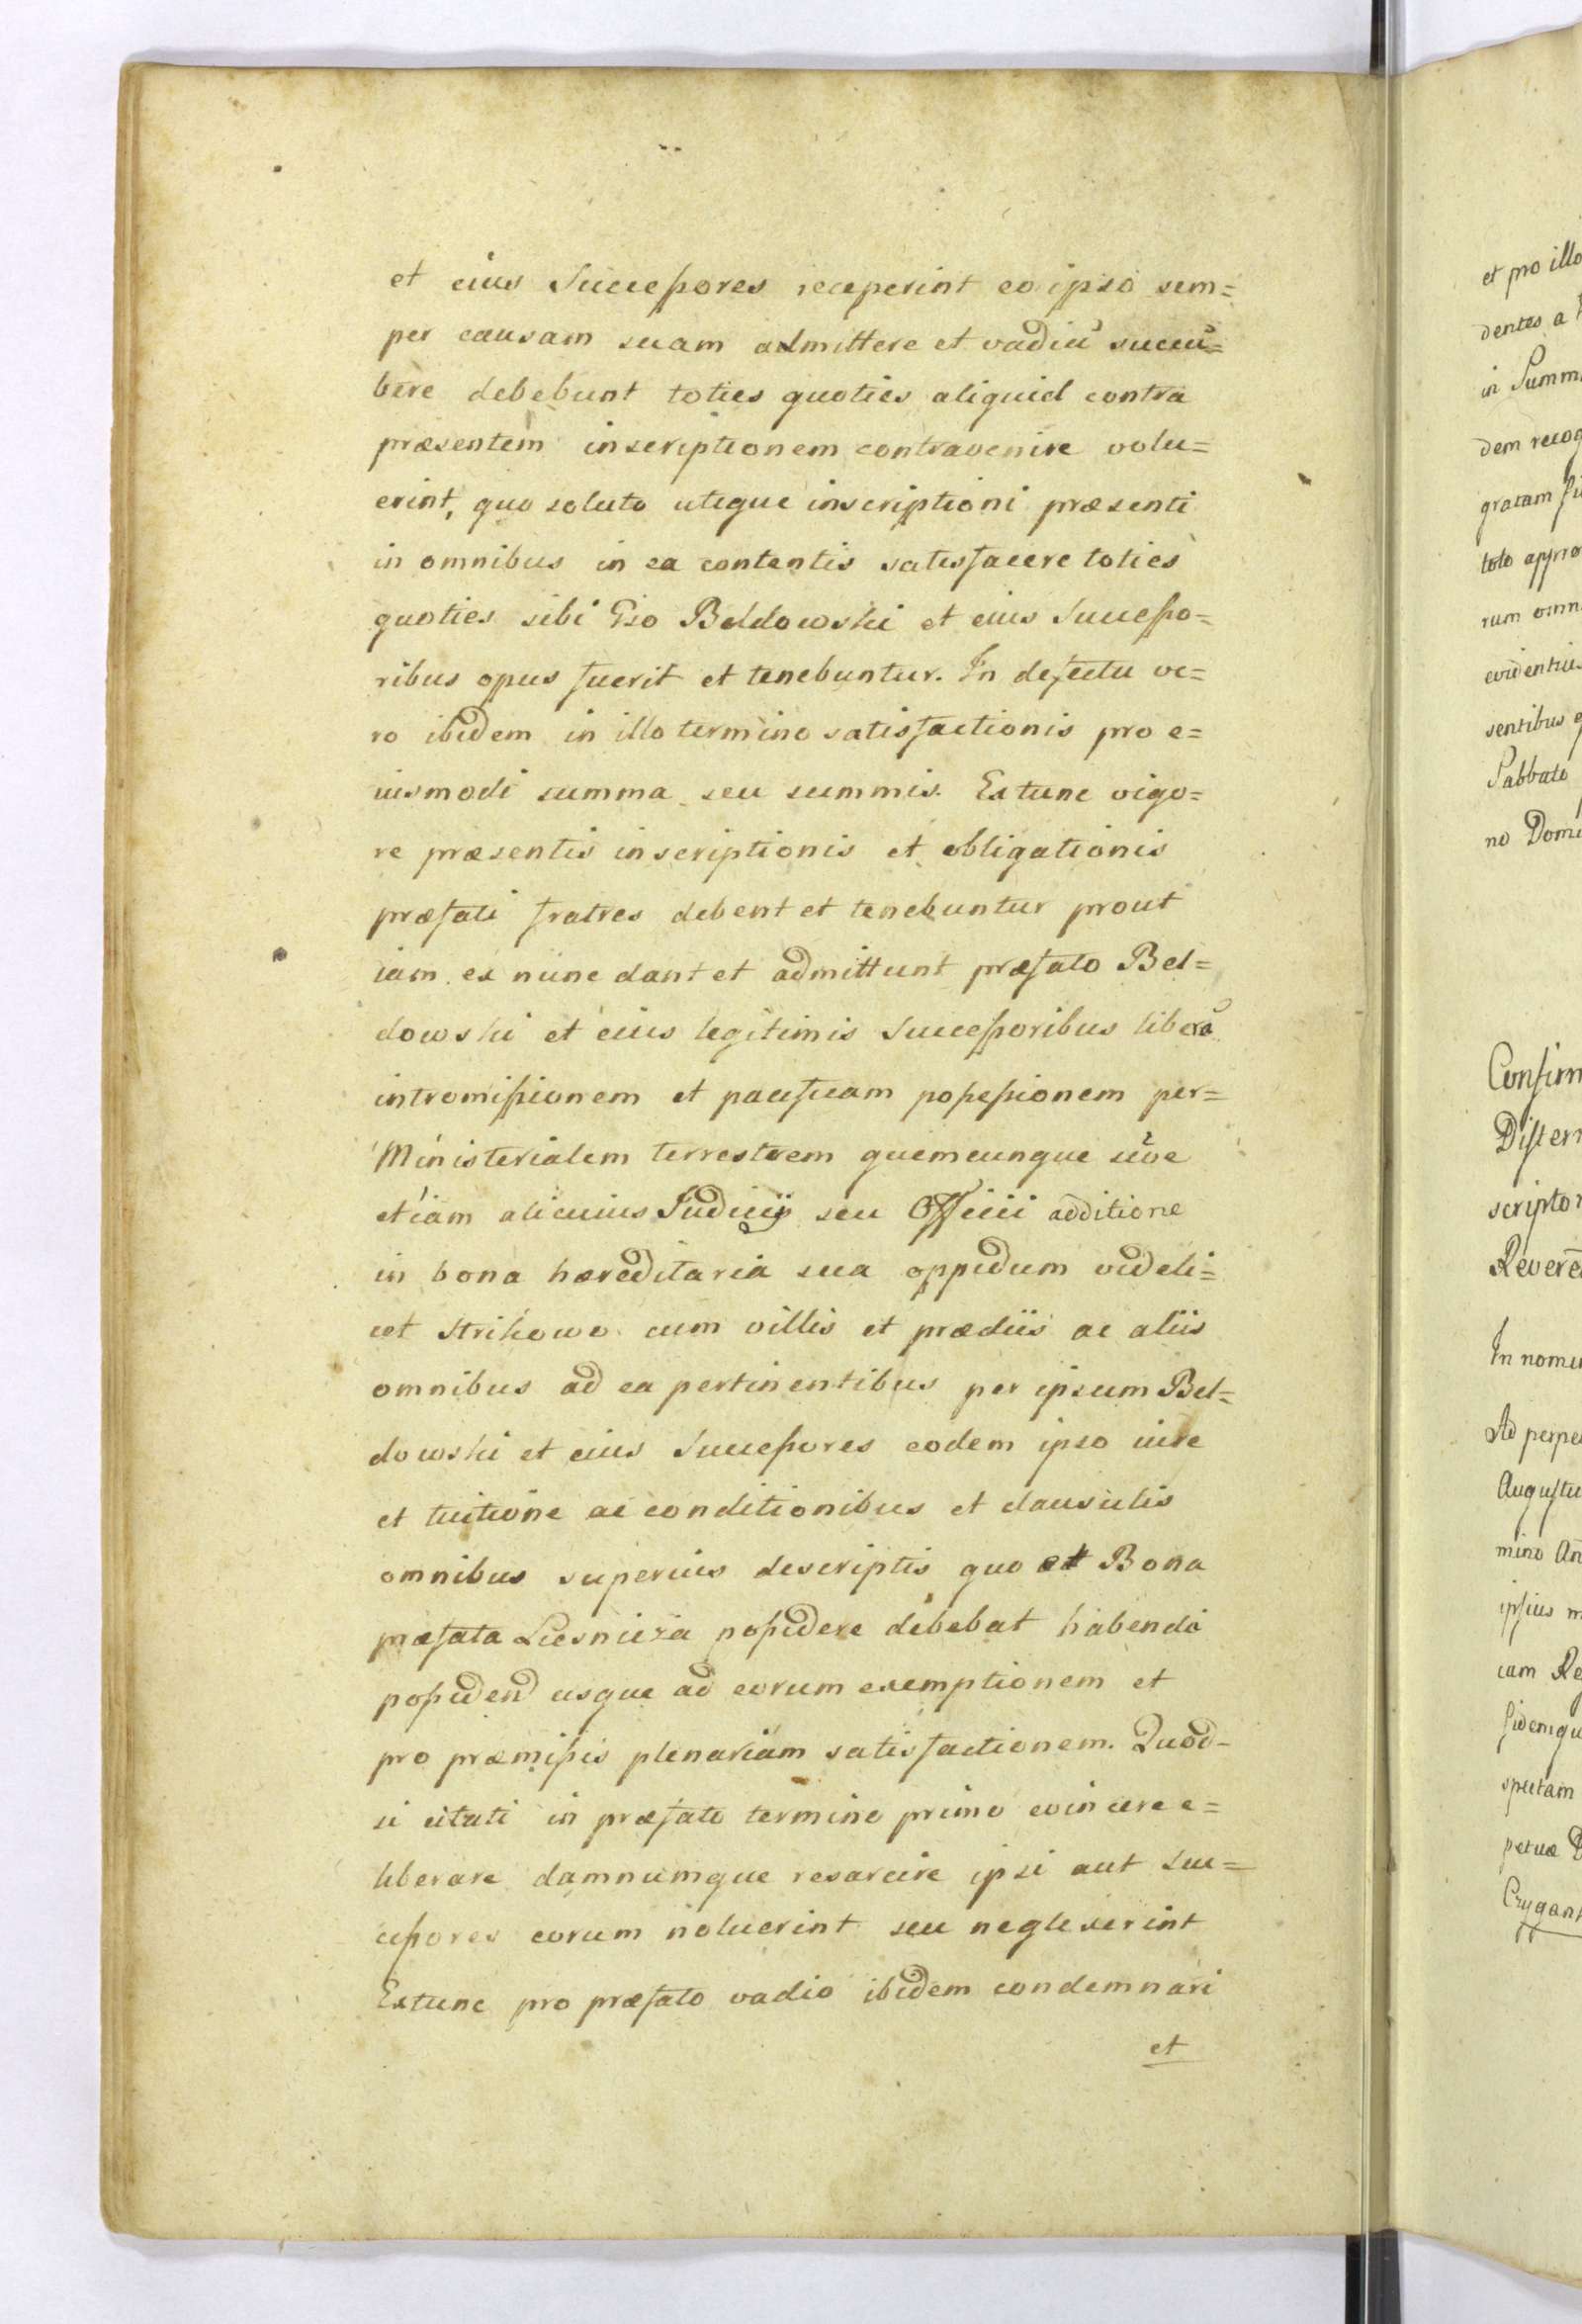 et eius Successores receperint eo ipso sem=
per causam suam admittere et vadiū succū=
bere debebunt toties quoties aliquid contra
præsentem inscriptionem contravenire volu=
erint, quo soluto utique inscriptioni præsenti
in omnibus in ea contentis satisfacere toties
quoties sibi Beldowski et eius Successo=
ribus opus fuerit et tenebuntur. In defectu ve=
ro ibidem in illo termino satisfactionis pro e=
iusmodi summa seu summis. Extunc vigo=
re præsentis inscriptionis et obligationis
præfati fratres debent et tenebuntur prout
iam ex nunc dant et admittunt præfato Bel=
dowski et eius legitimis Successoribus liberā
intromissionem et pacificam possessionem per=
Ministerialem terrestrem quemcunque sive
etiam alicuius Iudicij seu Officii additione
in bona hæreditaria sua oppidum videli=
cet Strikowo cum villis et prædiis ac aliis
omnibus ad ea pertinentibus per ipsum Bel=
dowski et eius Successores eodem ipso iure
et tuitione ac conditionibus et clausulis
omnibus superius descriptis quo et Bona
præfata possidere debebat habenda
possidend usque ad eorum exemptionem et
pro præmissis plenariam satisfactionem. Quod-
si citati in præfato termino primo evincere e=
liberare damnumque resarcire ipsi aut Suc=
cessores eorum noluerint seu neglexerint
Extunc pro præfato vadio ibidem condemnari
et
et pro illo
dentes a
in Summ
dem recog
gratam
toto appro
rum omn
evidentiu
sentibus
Sabbato
no Domi
Confirm
scriptor
In nomi
Ad perpe
Augustu
mino An
ipsius m
cum Re
fidemqu
spectam
petuæ